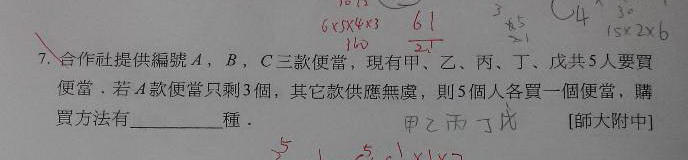 6×5×4×3
360
6!
2!
C4
30
15×2×6
7. 合作社提供編號A，B，C三款便當，現有甲、乙、丙、丁、戊共5人要買
便當．若A款便當只剩3個，其它款供應無虞，則5個人各買一個便當，購
買方法有________種． [師大附中]
甲乙丙丁戊